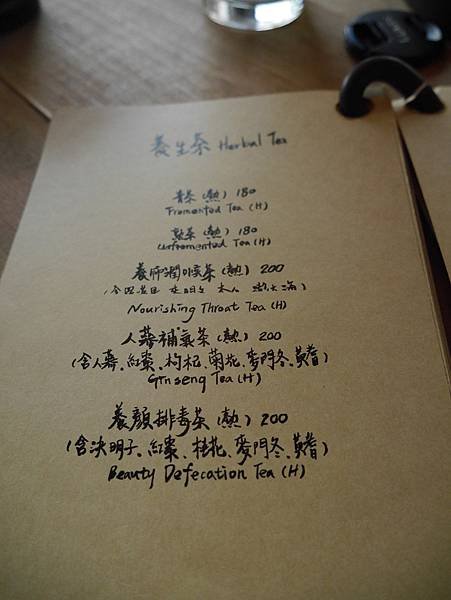 養生茶 Herbal Tea
青茶(熱) 180
Fromented Tea (H)
熟茶(熱) 180
Unfromented Tea (H)
養肝潤喉茶(熱) 200
Nourishing Throat Tea (H)
人蔘補氣茶(熱) 200
(含人蔘、紅棗、枸杞、菊花、麥門冬、黃耆)
Ginseng Tea (H)
養顏排毒茶(熱) 200
(含決明子、紅棗、桂花、麥門冬、黃耆)
Beauty Defecation Tea (H)